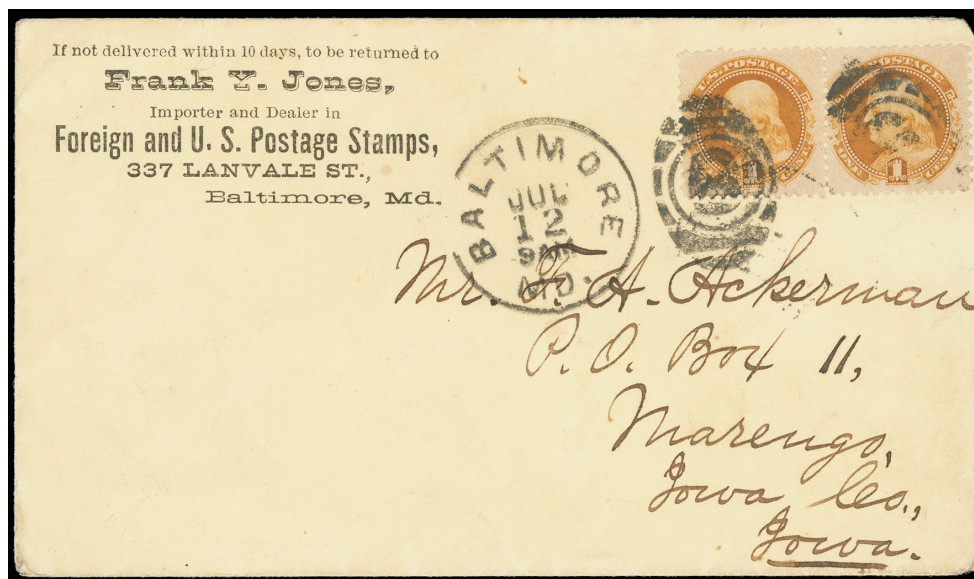 If not delivered within 10 days, to be returned to
Frank Y. Jones,
Importer and Dealer in
Foreign and U. S. Postage Stamps,
337 LANVALE ST.,
Baltimore, Md.
BALTIMORE
JUL
12
9AM
MD.
U.S. POSTAGE
1
CENT
POSTAGE
ONE 1 CENT
Mr. F. A. Ackerman
P. O. Box 11,
Marengo,
Iowa Co.,
Iowa.